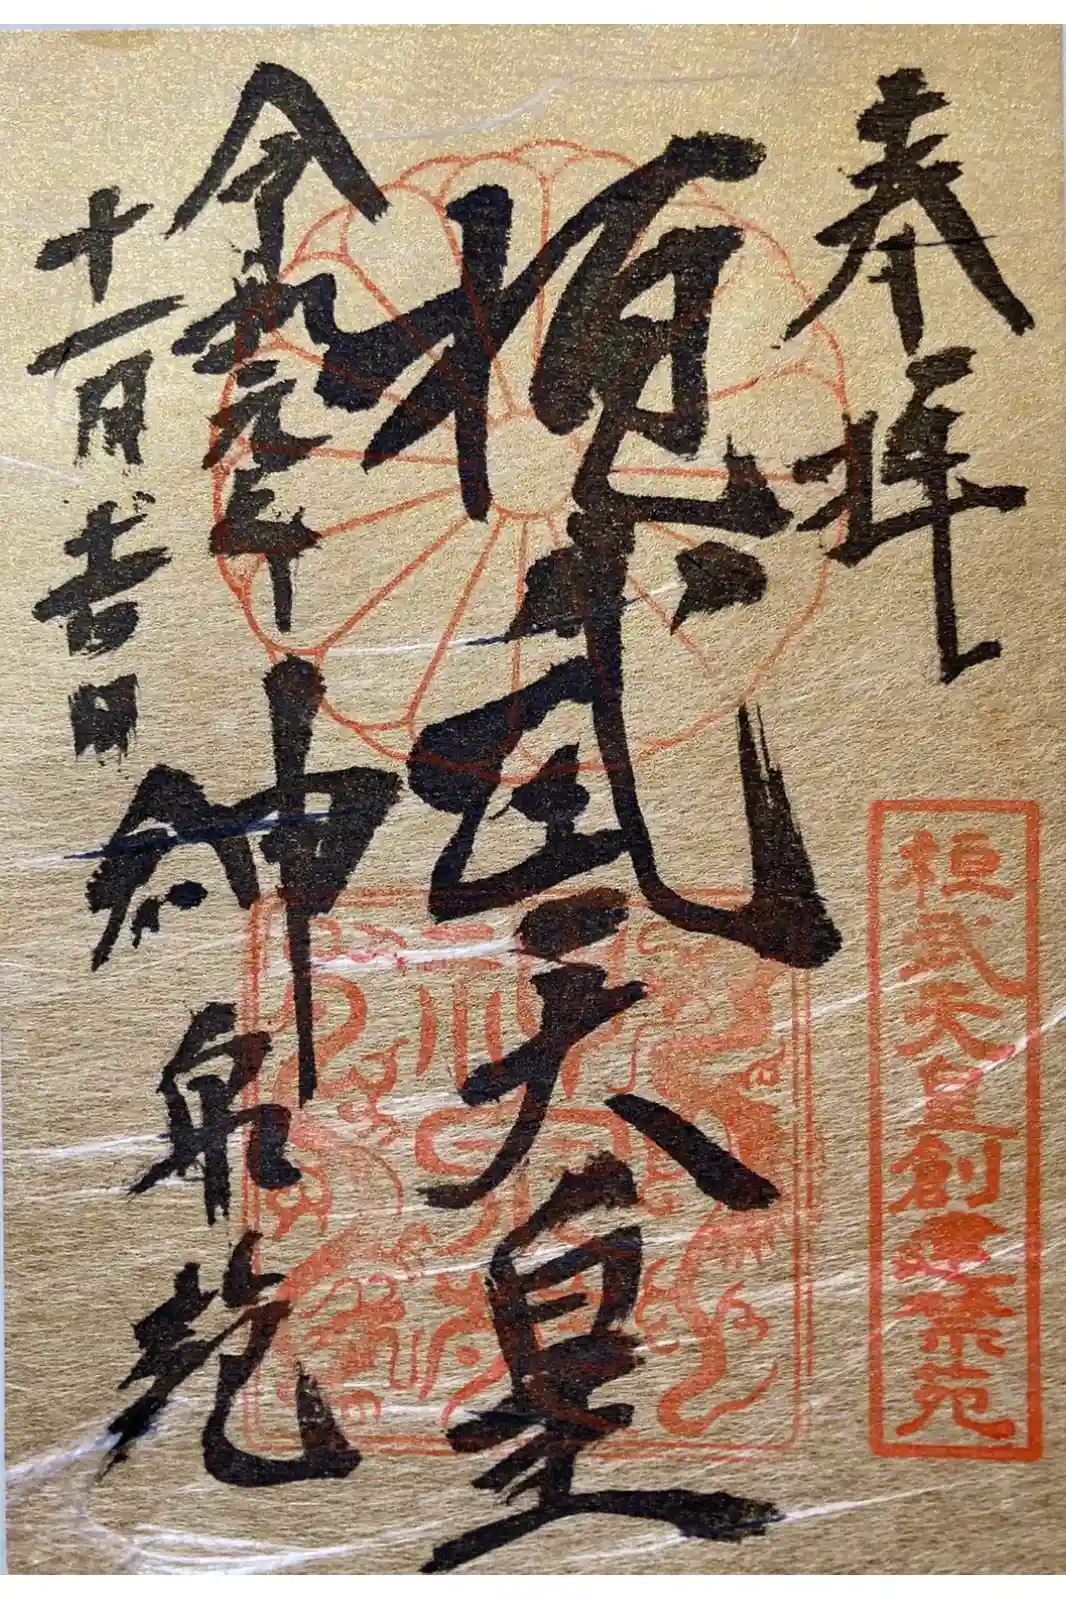 奉拝
桓武天皇創建禁苑
桓武天皇
令和元年
神泉苑
十一月吉日